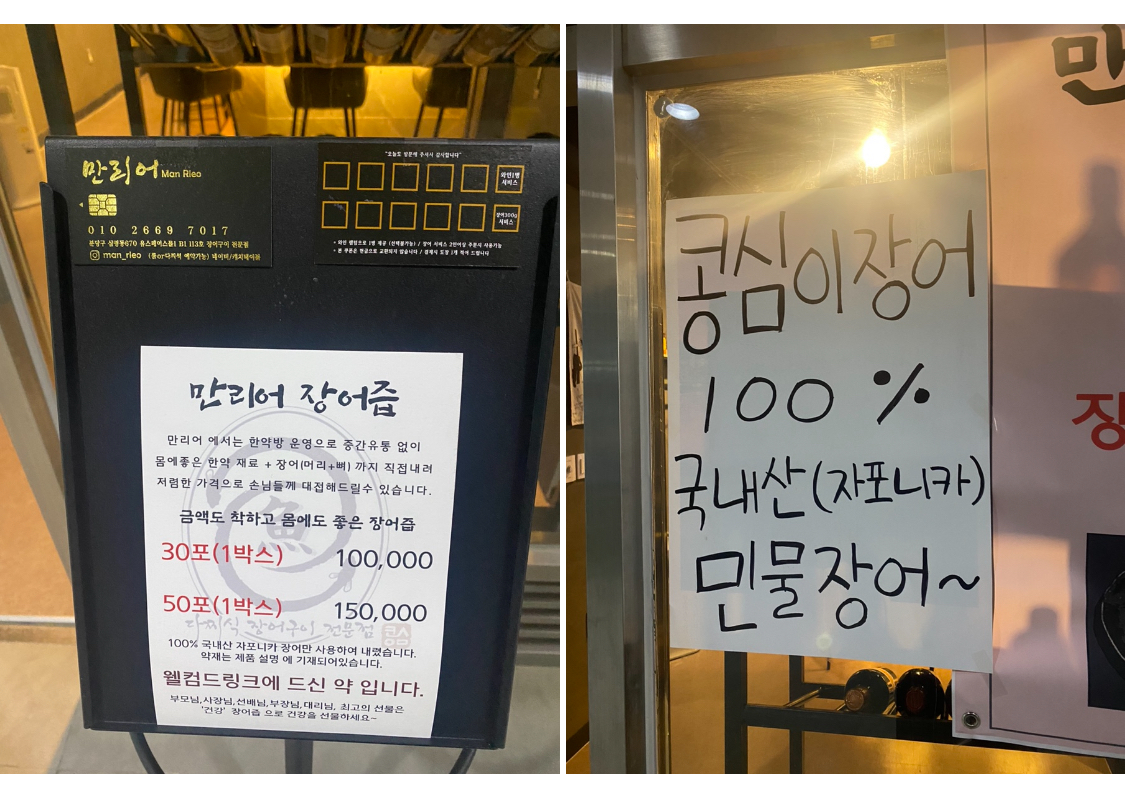 만리어 Man Rieo
010 2669 7017
man_rieo
"오늘도 방문해 주셔서 감사합니다"
와인1병
서비스
장어300g
서비스
만리어 장어즙
만리어 에서는 한약방 운영으로 중간유통 없이
몸에좋은 한약 재료 + 장어(머리+뼈) 까지 직접내려
저렴한 가격으로 손님들께 대접해드릴수 있습니다.
금액도 착하고 몸에도 좋은 장어즙
30포(1박스) 100,000
50포(1박스) 150,000
다찌식 장어구이 전문점
100% 국내산 자포니카 장어만 사용하여 내렸습니다.
약재는 제품 설명 에 기재되어있습니다.
웰컴드링크에 드신 약 입니다.
부모님,사장님,선배님,부장님,대리님, 최고의 선물은
'건강' 장어즙 으로 건강을 선물하세요~
魚
콩심이장어
100 %
국내산(자포니카)
민물장어~
만
장